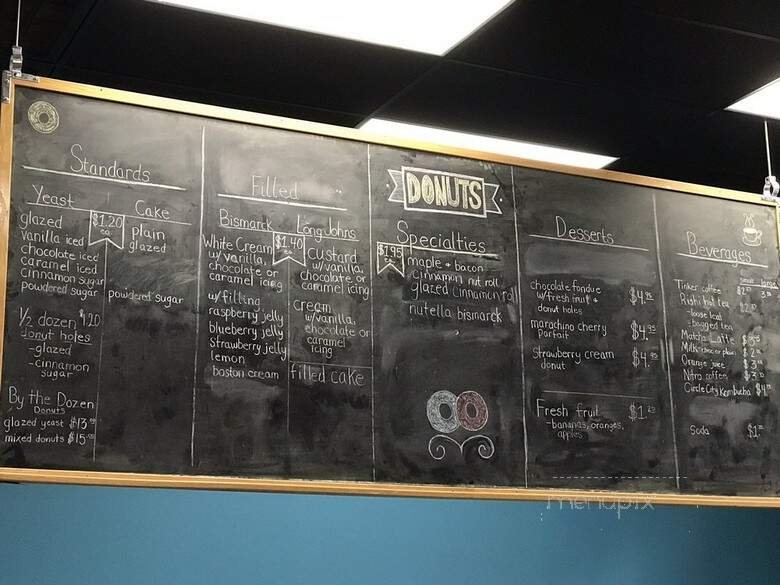 Standards
Yeast
glazed
vanilla iced
chocolate iced
caramel iced
cinnamon sugar
powdered sugar
$1.20
ea.
Cake
plain
glazed
powdered sugar
1/2 dozen $1.20
donut holes
-glazed
-cinnamon
sugar
By the Dozen
Donuts
glazed yeast $13
mixed donuts $15
Filled
Bismarck
White Cream
w/vanilla,
chocolate or
caramel icing
w/filling
raspberry jelly
blueberry jelly
strawberry jelly
lemon
boston cream
$1.40
ea.
Long Johns
custard
w/vanilla,
chocolate or
caramel icing
cream
w/vanilla,
chocolate or
caramel
icing
filled cake
DONUTS
Specialties
$1.95
ea.
maple + bacon
cinnamon nut roll
glazed cinnamon roll
nutella bismarck
Desserts
chocolate fondue
w/fresh fruit +
donut holes
maraching cherry
parfait
$4.95
strawberry cream
donut
$4.95
Fresh fruit
-bananas, oranges,
apples
Beverages
Tinker coffee
Rishi hot tea
-loose leaf
-bagged tea
Matcha Latte
Orange juice
Nitro coffee
Circle City Kombucha
Soda
menupix